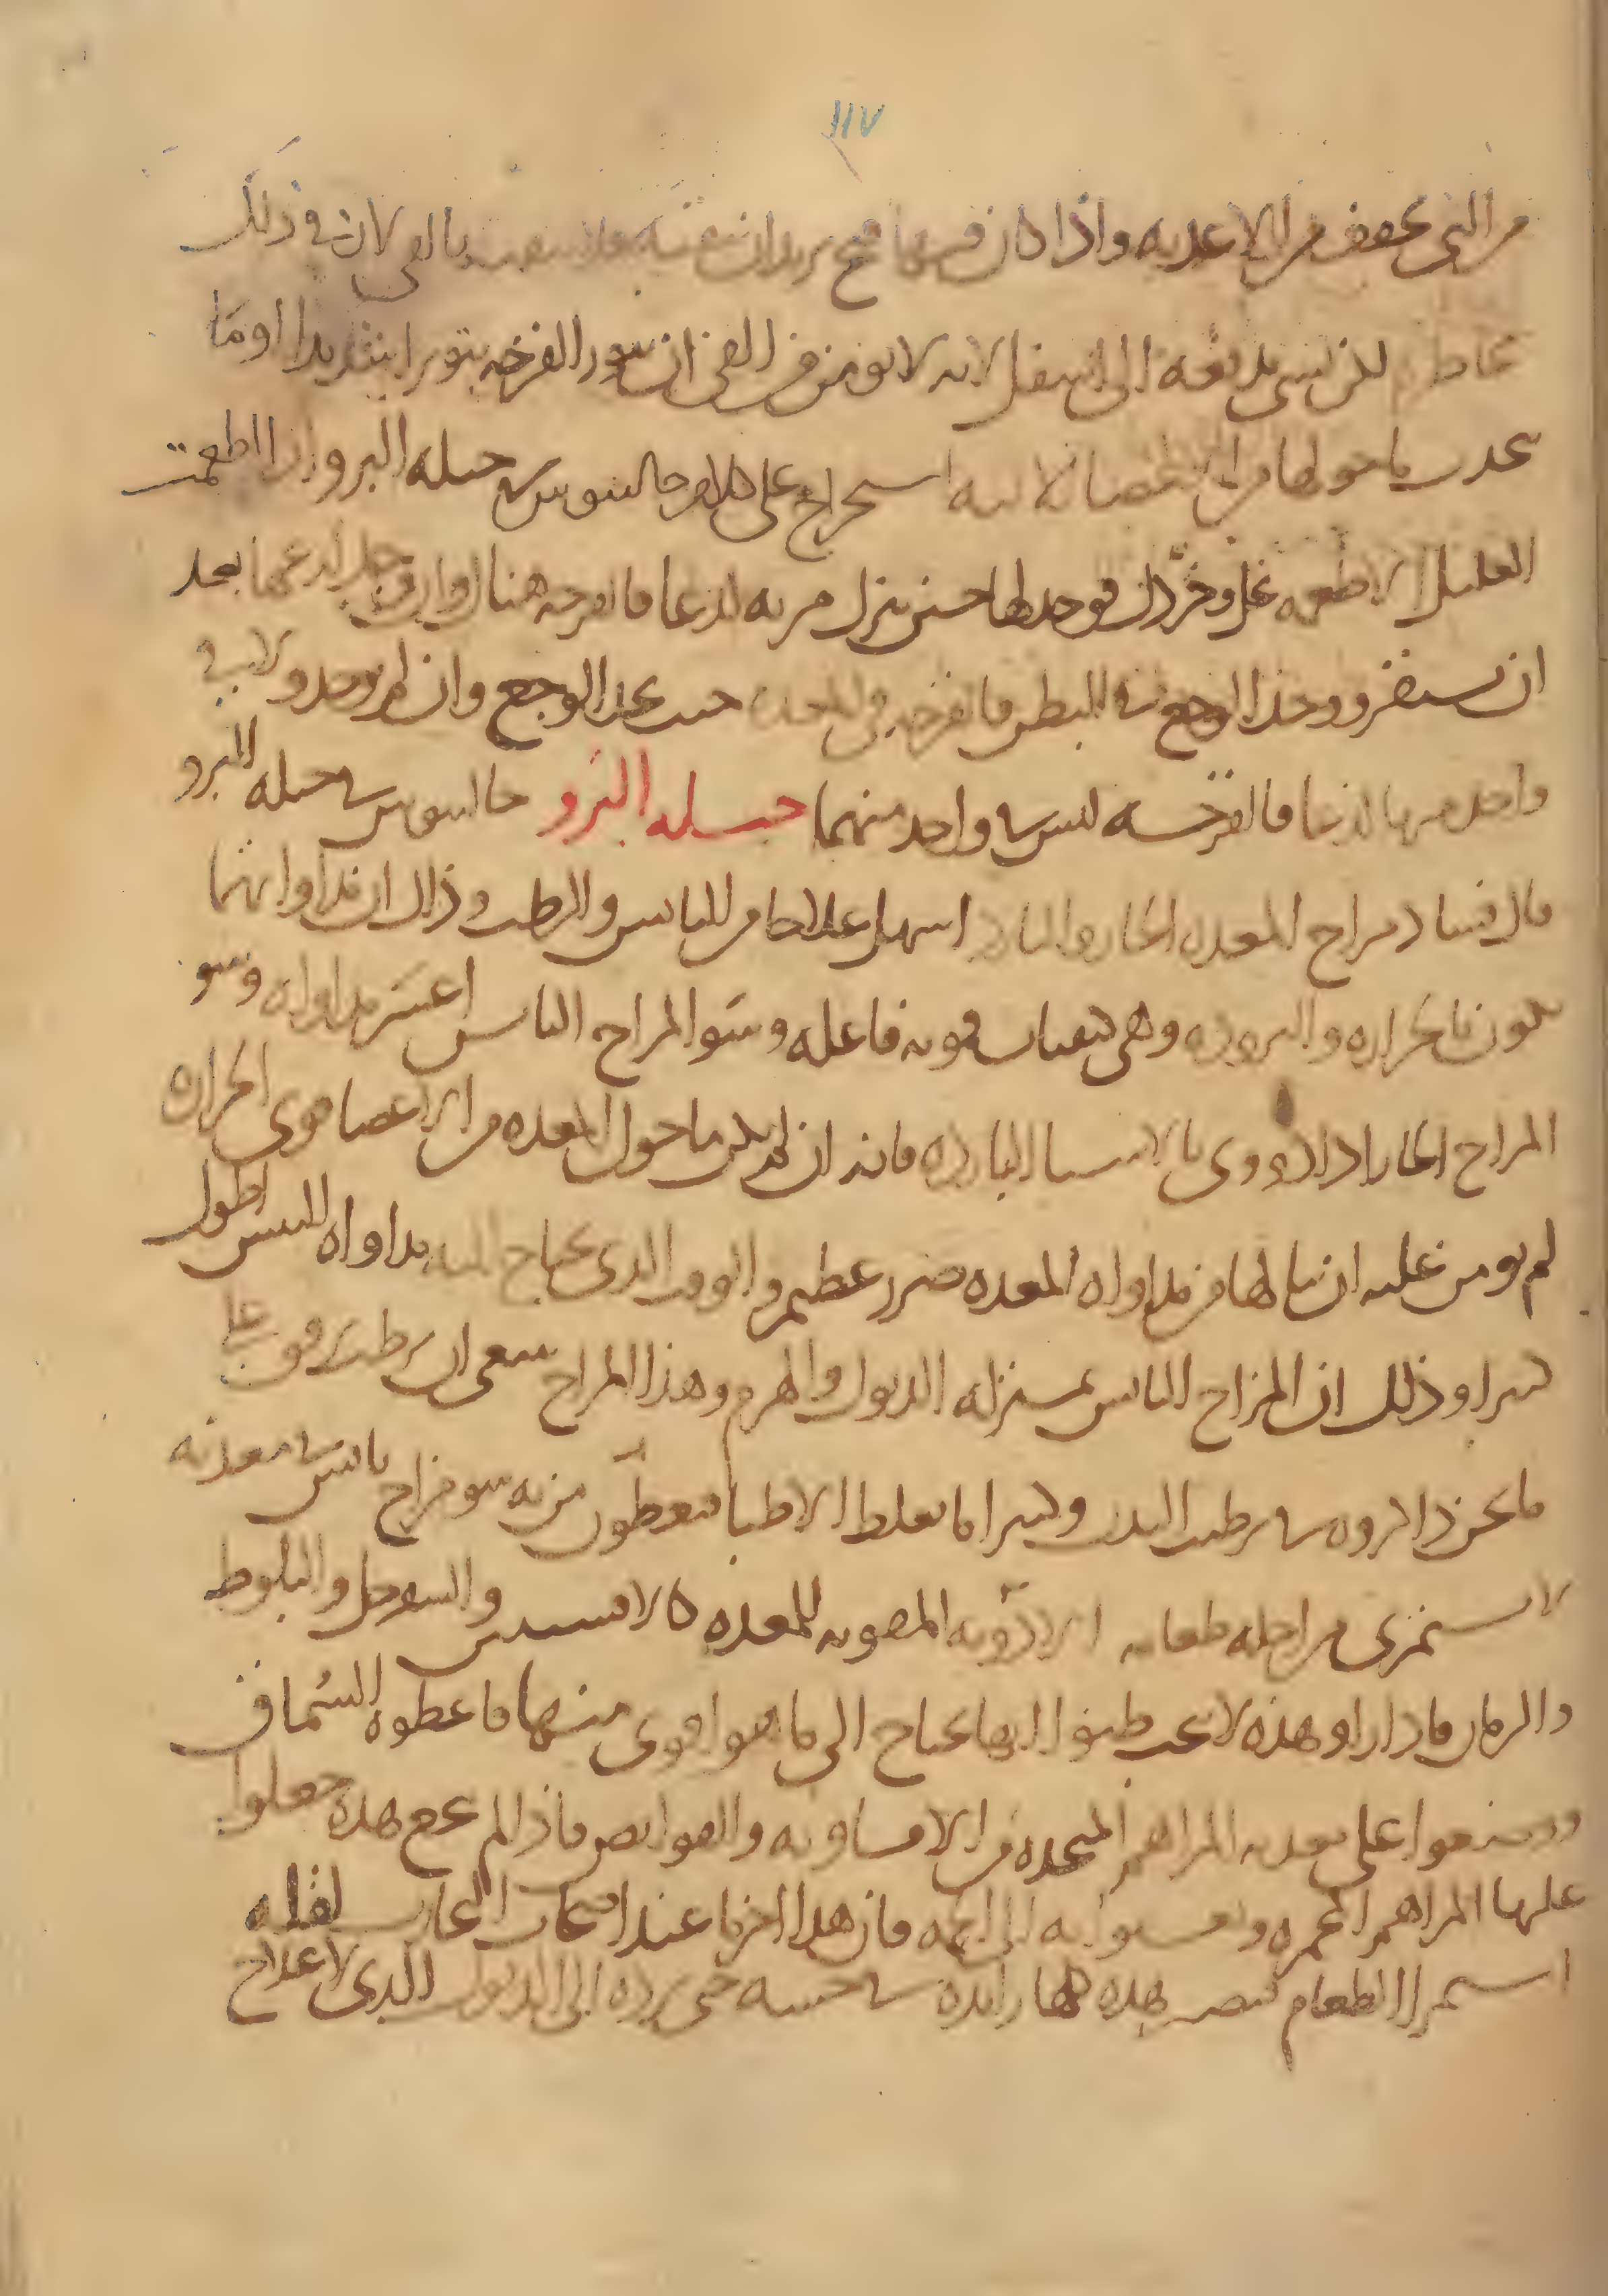 ١١٧
من التي تجفف من الاغذيه واذا كان فيها قيح تريد ان تنقيه فلا بالقي لان في ذلك
مخاطره لكن شي يدفعه الى اسفل لانه لا يومن من القي ان يثور القرحه تثويرا شديدا او ما
يجذب ما حولها من الاعضا استخراج على جالينوس في حيله البرو اذا اطعمت
العليل الاطعمه بخل وخردل فوجد لها حين ينزل مريه لذعا فالقرحه هناك وان وجد لذعها بعد
ان تستقر ووجد الوجع في البطن فالقرحه في المعده حيث يجد الوجع وان لم يوجد ولا في
واحد منها لذعا فالقرحه ليس في واحد منهما حيله البرو جالينوس في حيله البرو
قال فساد مزاج المعده الحار والبارد اسهل علاجا من اليابس والرطب وذاك ان مداواتهما
تكون بالحراره والبروده وهي كيفيات قويه فاعله وسو المزاج اليابس اعسر مداواه وسو
المزاج الحار اذا دووى بالاشيا البارده فانه ان لم يكن ما حول المعده من الاعضا قوى الحراره
لم يومن عليه ان ينالها من مداواه المعده ضرر عظيم والوقت الذي يحتاج اليه مداواه اليبس اطول
كثيرا وذلك ان المزاج اليابس بمنزله الذبول والهرم وهذا المزاج ينبغي ان يرطب
ما نحن ذاكروه في ترطيب البدن وكثيرا ما يغلط الاطبا فيعطون من به سو مزاج يابس في معدته
لا يستمرى من اجله طعامه الادويه المقويه للمعده كالافسنتين والسفرجل والبلوط
والرمان فاذا راو هذه لا تجب ظنوا انها تحتاج الى ما هو اقوى منها فاعطوه السماق
ووضعوا على معدته المراهم المتخذه من الافاويه والقوابض فاذا لم تنجح هذه جعلوا
عليها المراهم المحمره به الى الحمه فان هذا اخر ما عند اصحاب التجارب لقله
استمرا الطعام فتصير هذه كلها زايده في جنسه حتى يرده الى الذبول الذي لا علاج